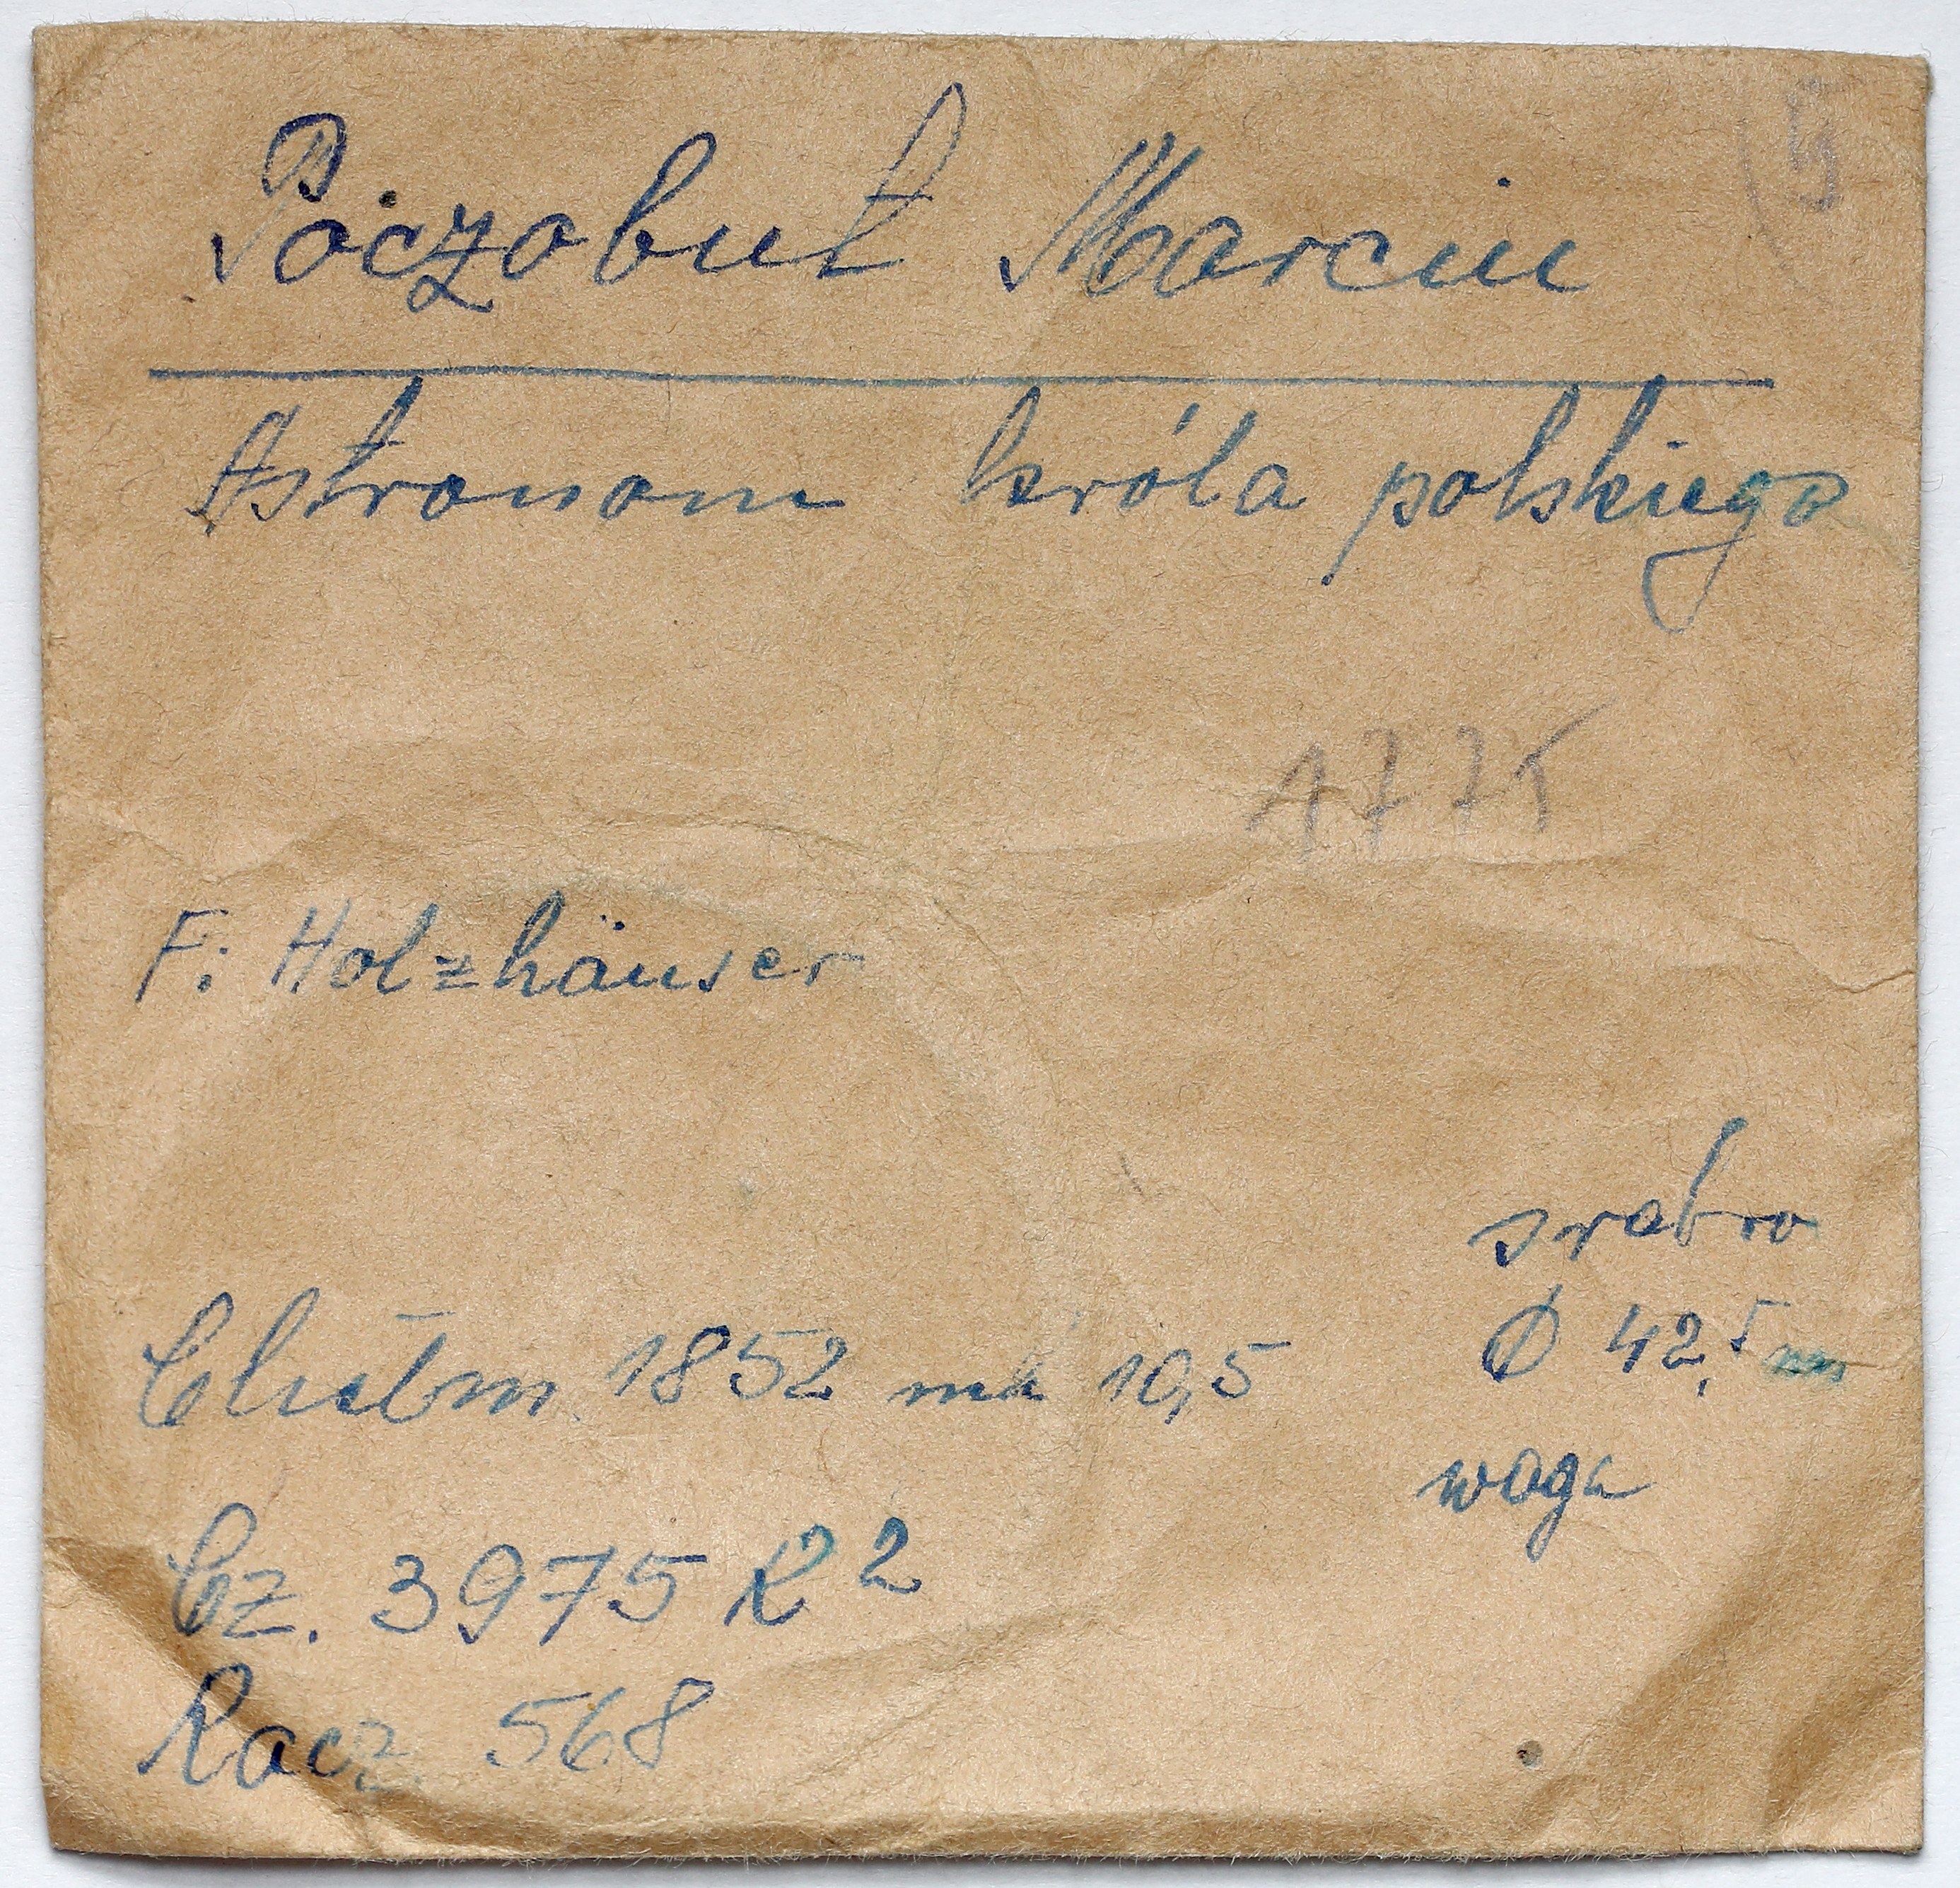 Poczobut Marcin
Astronom króla polskiego
1775
F: Holzhäuser
srebro
Ø 42,5 mm
Chełm 1852 mk 10,5
waga
Cz. 3975 R2
Racz. 568